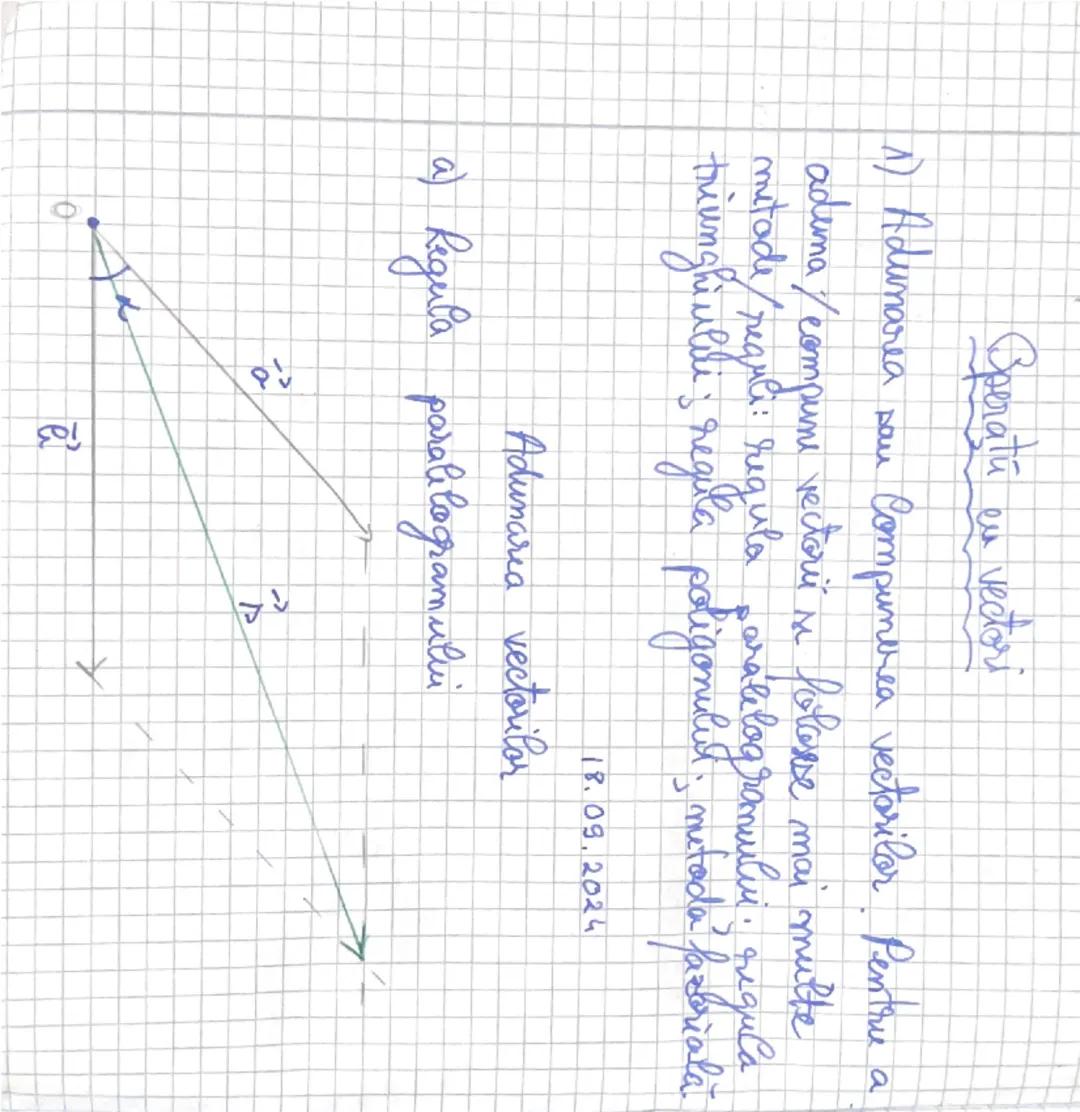 Operatii cu vectori
1) Adunarea sau Compunerea vectorilor. Pentru a
aduna/compune vectorii se folosesc mai multe
metode/reguli: regula paralelogramului; regula
triunghiului; regula poligonului; metoda fazorială
18.09.2024
Adunarea vectorilor
a) Regula paralelogramului
a
s
α
O